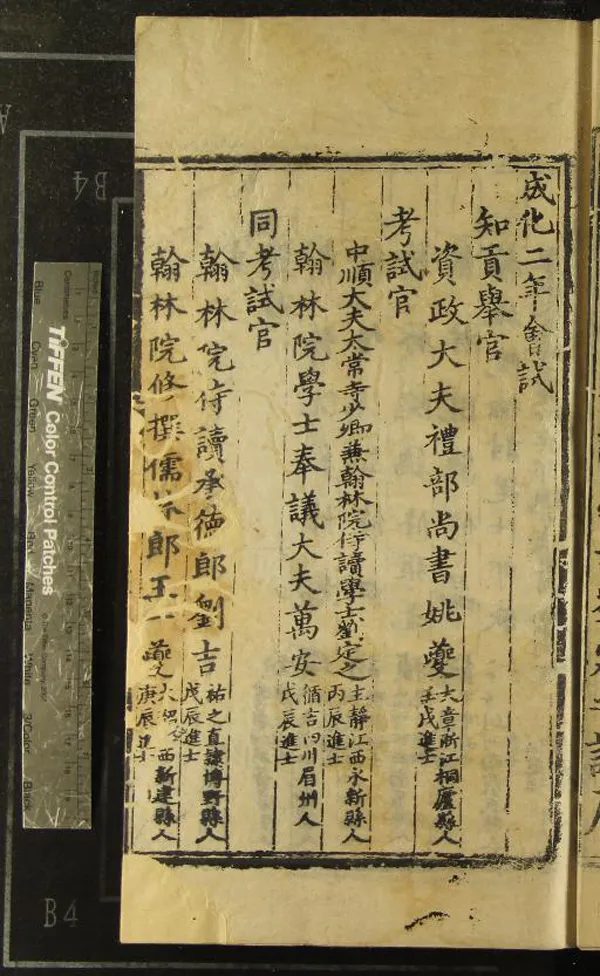 成化二年會試
知貢舉官
資政大夫禮部尚書姚夔 大章浙江桐廬縣人
壬戌進士
考試官
中順大夫太常寺少卿兼翰林院侍讀學士劉定之 主靜江西永新縣人
丙辰進士
翰林院學士奉議大夫萬安 循吉四川眉州人
戊辰進士
同考試官
翰林院侍讀承德郎劉吉 祐之直隸博野縣人
戊辰進士
翰林院修撰儒林郎王一夔 大 西新建縣人
庚辰進士
TIFFEN Color Control Patches
Centimetres
Inches
Blue
Cyan
Green
Yellow
Red
Magenta
White
3/Color
Black
B4
B4
A